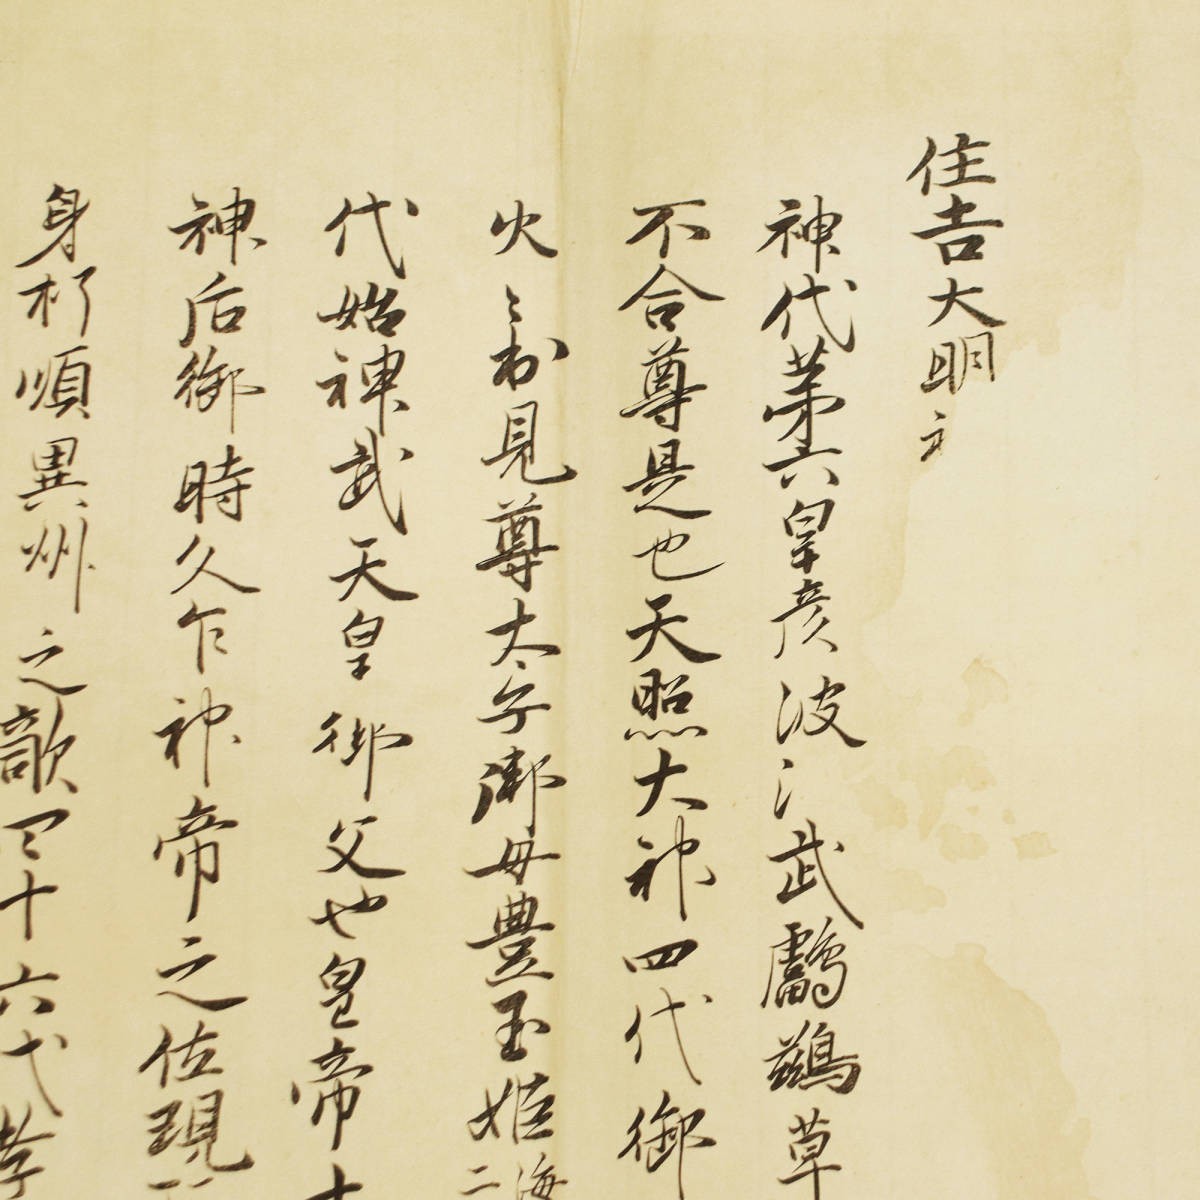 住吉大明
神代第六皇彦波武鸕鷀草
不合尊是也天照大神四代御
火々出見尊太子御母豊玉姫海二
代始神武天皇御父也皇帝十
神后御時久乍神帝之佐現
身朽順異州之敵四十六代孝